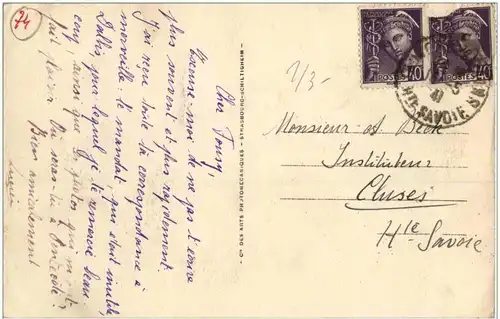 74
Cher Toury
Excuse-moi de ne pas t'écrire
plus souvent et plus rapidement
J'ai reçu toute ta correspondance à
merveille : le mandat, qui était inutile,
Dalbis, pour lequel je te remercie beau
coup ainsi que les photos qui m'ont
fait plaisir. Où seras-tu à
Bien amicalement
Lucien
Cie DES ARTS PHOTOMÉCANIQUES - STRASBOURG-SCHILTIGHEIM
POSTES 40
POSTES 40
41
HTE-SAVOIE
1/3-
Monsieur A. Beck
Instituteur
Cluses
Hte Savoie